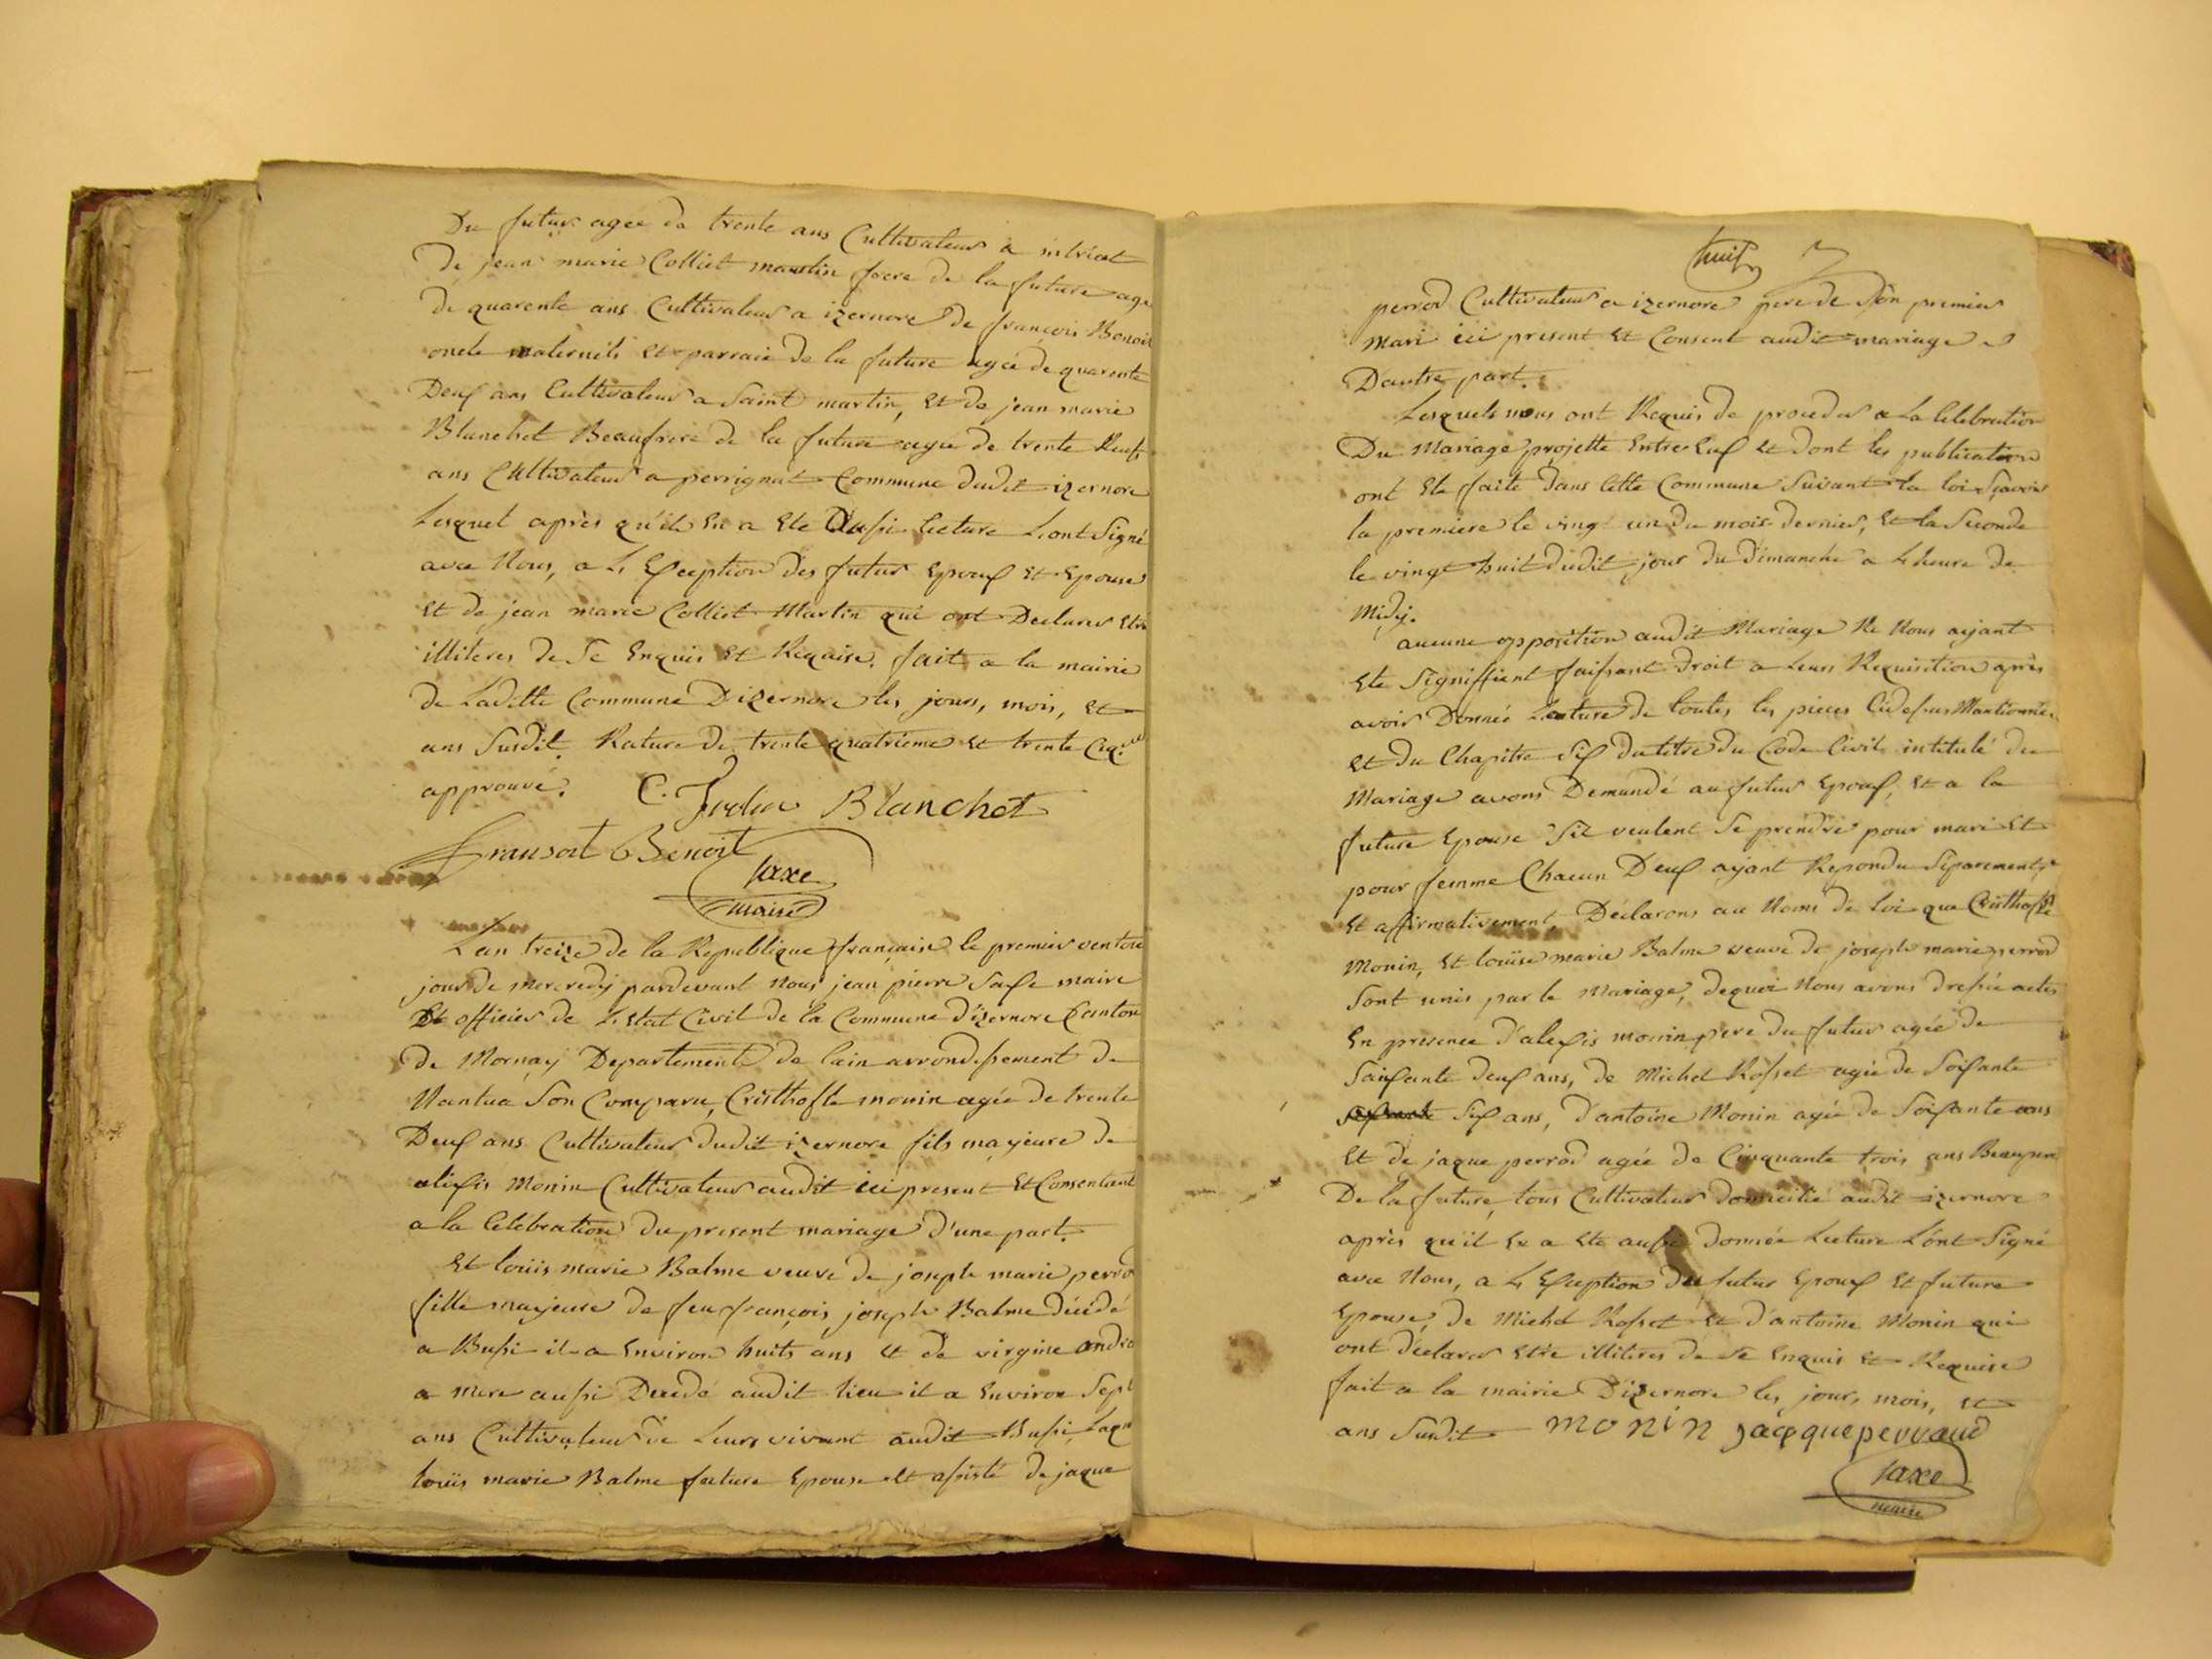 Du futur agee de trente ans Cultivateur a intriat
de jean marie Colliet martin frere de la future age
de quarente ans Cultivateur a izernore de françois Benoit
oncle maternels et parrain de la future agée de quarente
Deux ans Cultivateur a Saint martin, et de jean marie
Blanchet Beaufrere de la future agée de trente Neuf
ans Cultivateur a perrignat Commune dudit izernore
Lesquel après qu'il En a Ete Aussi lecture L'ont Signé
avec Nous, a L'Exception des futur Epoux et Epouse
et de jean marie Colliet Martin qui ont Declares Etre
illiteres de Ce Enquis et Requise. fait a la mairie
de Laditte Commune Dizernore les jours, mois, et
ans Susdit. Rature de trente quatrieme et trente
approuvé. C. Blanchet
fransoit Benoit
Saxe
maire
Lan treize de la Republique française le premier ventose
jour de mercredy pardevant Nous jean pierre Saxe maire
Et officier de L'Etat Civil de la Commune d'izernore Canton
de Mornay Departement de lain arrondissement de
Nantua Son Comparu, Cristhofle monin agée de trente
Deux ans Cultivateur dudit izernore fils majeure de
alexis Monin Cultivateur audit ici present et Consentant
a la Celebration du present mariage d'une part.
Et loüis marie Balme veuve de joseph marie perrod
fille majeure de feu françois joseph Balme décédé
a Bussi il a Environ huits ans et de virgine andre
a mere aussi Decedé audit lieu il a Environ Sept
ans Cultivateur de Leurs vivant audit Bussi Laqu
loüis marie Balme future Epouse et assisté de jaque
huit
perrod Cultivateur a izernore pere de Son premier
mari ici present et Consent audit mariage
D'autre part.
Lesquels nous ont Requis de proceder a La Celebration
Du Mariage projetté Entre Eux et dont les publication
ont Ete faite dans Cette Commune Suivant la loi Sçavoir
la premiere le vingt un du mois dernier, et la Seconde
le vingt huit dudit jour du dimanche a L'heure de
Midy.
aucune opposition audit Mariage Ne Nous ayant
Ete Signiffient faissant droit a Leurs Requisition après
avoir Donnée Lecture de toutes les pieces Cidessus Mantionnée
et du Chapitre Six du titre du Code Civil intitulé du
Mariage avons Demandé au futur Epoux, et a la
future Epouse S'il veulent Se prendre pour mari et
pour femme Chacun D'eux ayant Repondu Séparement
et affirmativement, Déclarons au Noms de loi que Cristhofle
Monin, et loüise marie Balme veuve de joseph marie perrod
Sont unis par le Mariage, dequoi Nous avons dressée actes
En presence d'alexis monin pere du futur agée de
Soixante deux ans, de Michel Rosset agée de Soixante
Six ans, d'antoine Monin agée de Soixante ans
et de jaque perrod agée de Cinquante trois ans Beaupere
De la future, tous Cultivateur domicilié audit izernore
après qu'il En a Ete aussi donnée Lecture L'ont Signé
avec Nous, a L'Exception des futur Epoux et future
Epouse, de Michel Rosset et d'antoine Monin qui
ont déclares Etre illiteres de Ce Enquis et Requise
fait a la mairie D'izernore les jours, mois, et
ans Susdit monin jacque perraud
Saxe
maire